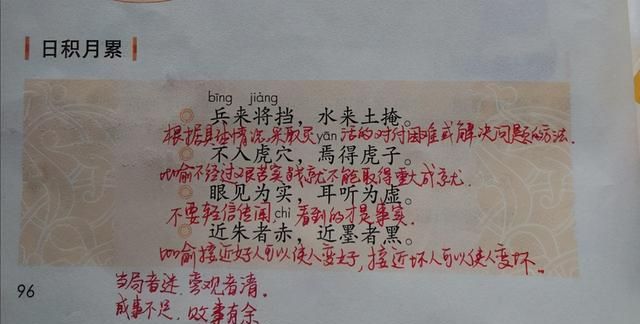 日积月累
bīng jiàng
兵来将挡，水来土掩。
根据具体情况，采取灵yān活的对付困难或解决问题的方法.
不入虎穴，焉得虎子。
比喻不经过艰苦实践就不能取得重大成就.
眼见为实，耳听为虚。
不要轻信传闻chì看到的才是事实.
近朱者赤，近墨者黑。
比喻接近好人可以使人变好，接近坏人可以使人变坏.
当局者迷，旁观者清.
96
成事不足，败事有余